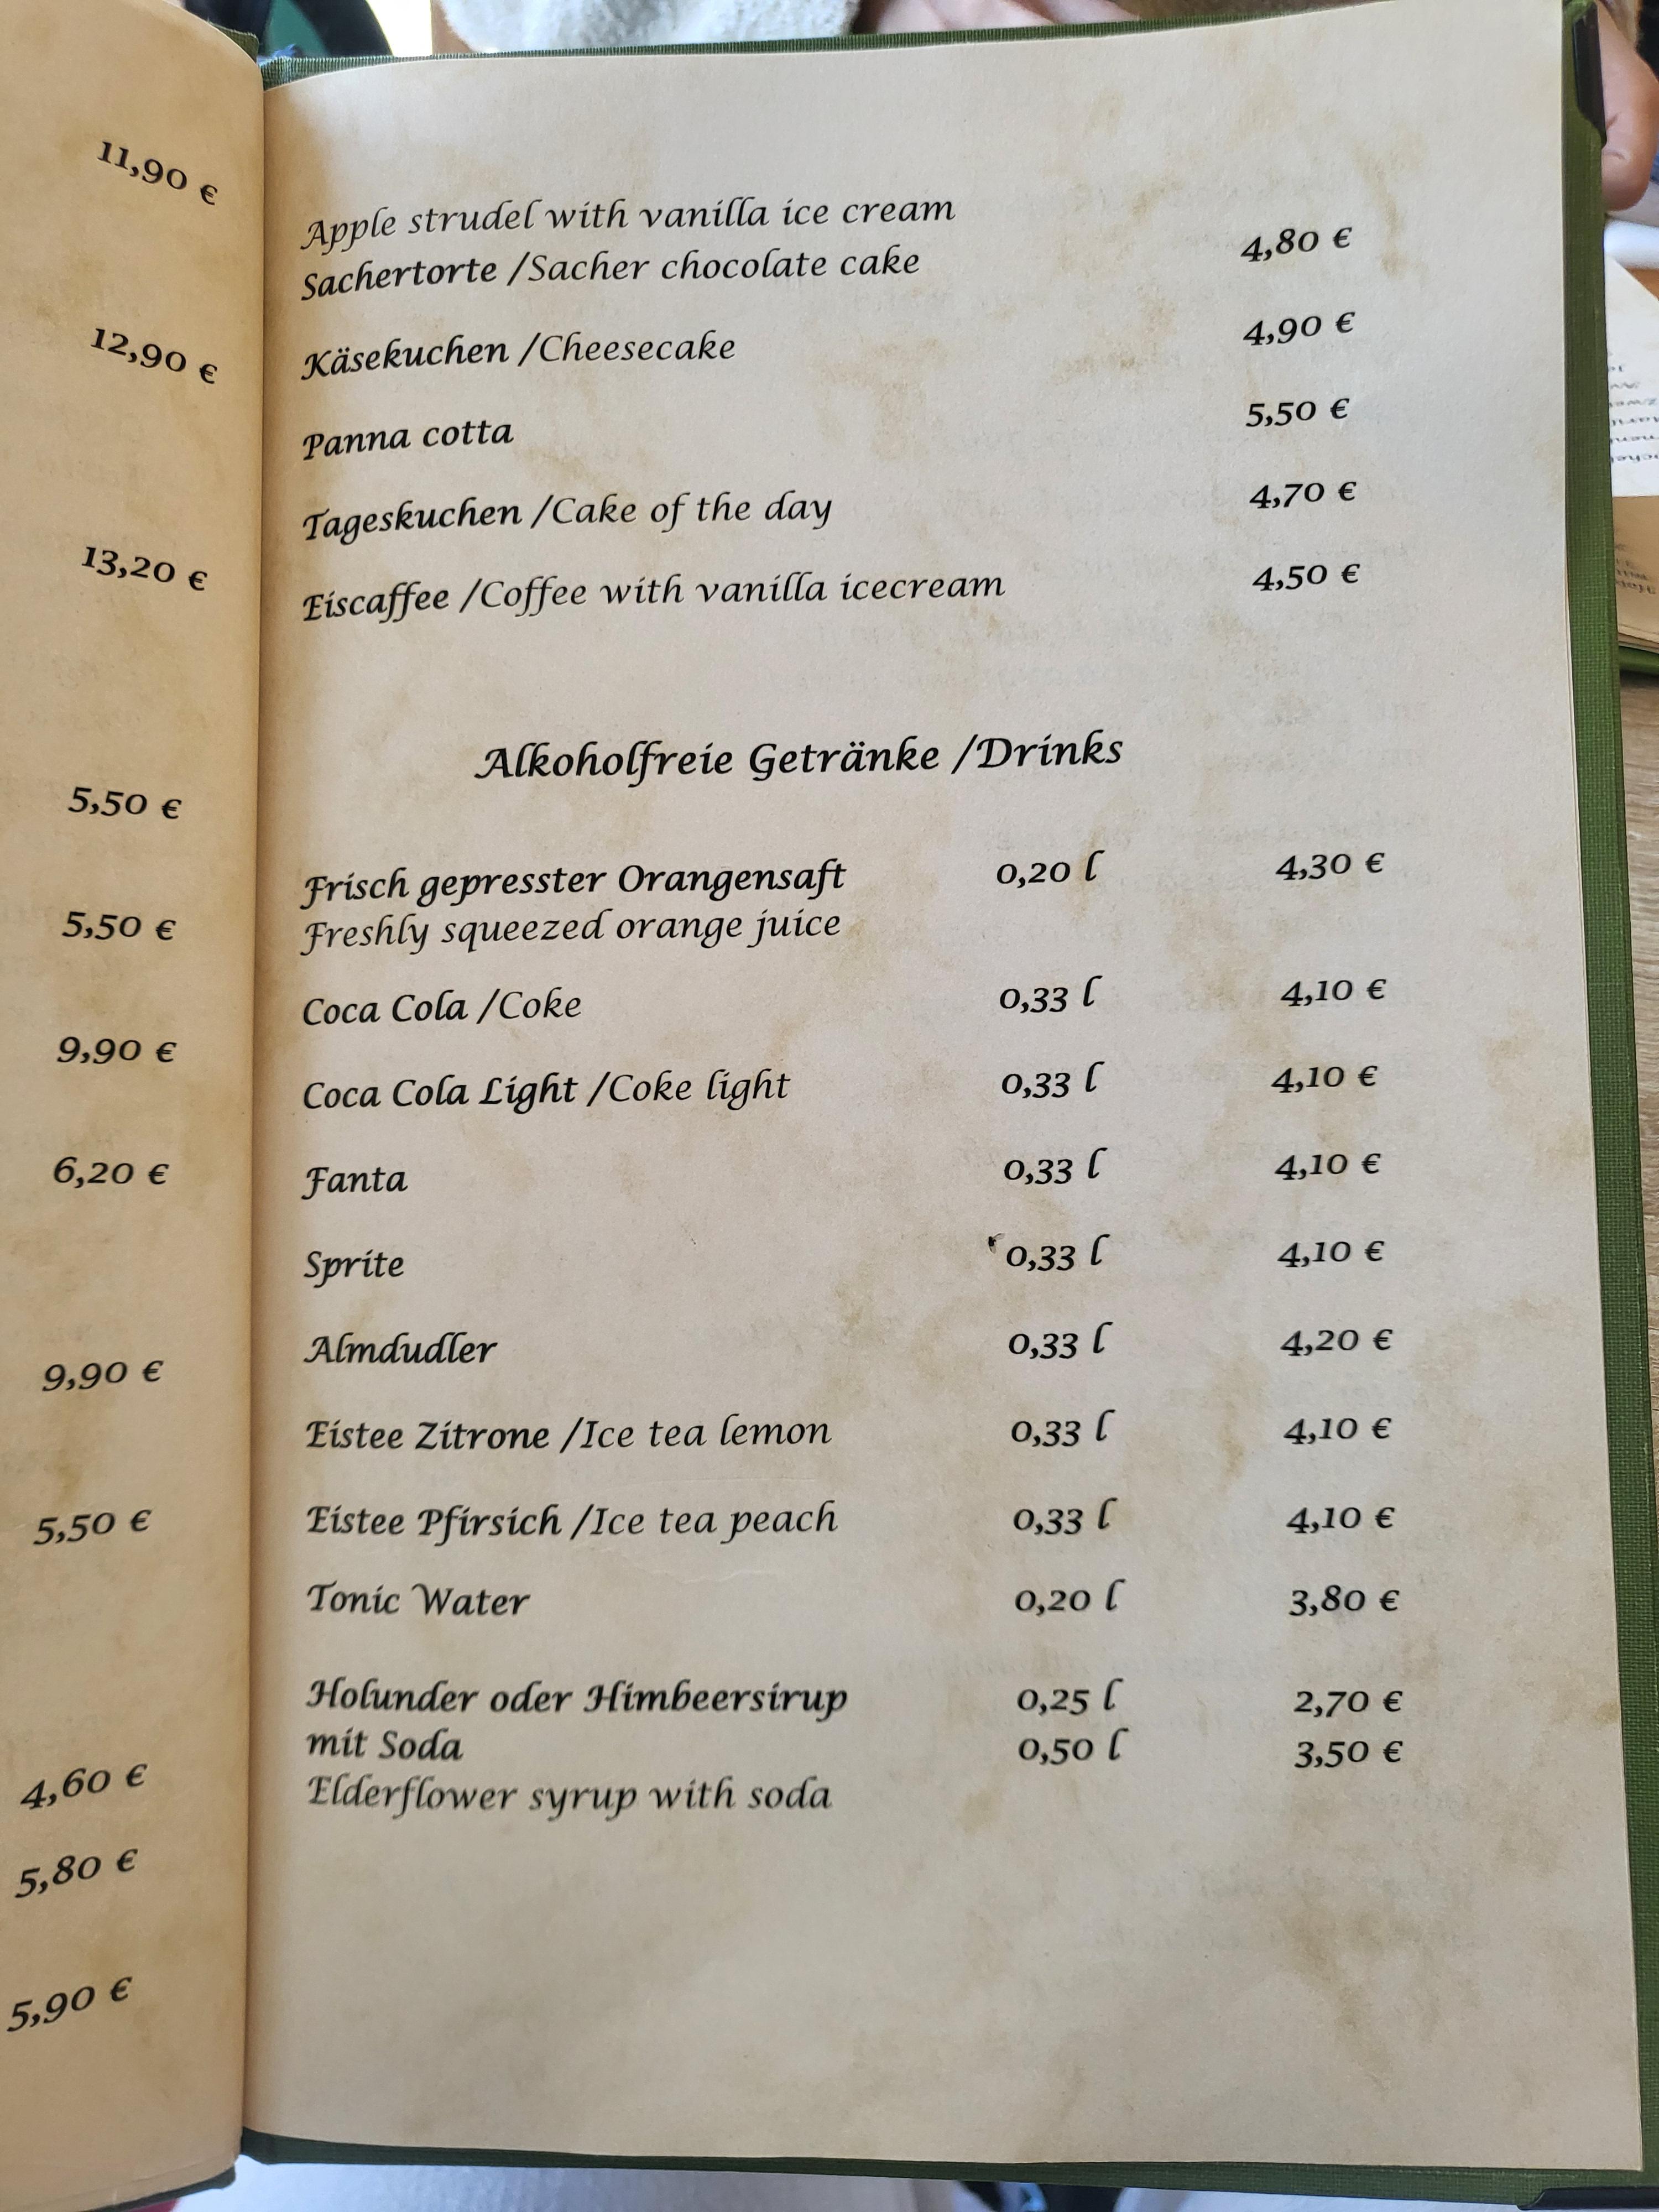 11,90 €
12,90 €
13,20 €
5,50 €
5,50 €
9,90 €
6,20 €
9,90 €
5,50 €
4,60 €
5,80 €
5,90 €
Apple strudel with vanilla ice cream
Sachertorte /Sacher chocolate cake 4,80 €
Käsekuchen /Cheesecake 4,90 €
Panna cotta 5,50 €
Tageskuchen /Cake of the day 4,70 €
Eiscaffee /Coffee with vanilla icecream 4,50 €
Alkoholfreie Getränke /Drinks
Frisch gepresster Orangensaft 0,20 l 4,30 €
Freshly squeezed orange juice
Coca Cola /Coke 0,33 l 4,10 €
Coca Cola Light /Coke light 0,33 l 4,10 €
Fanta 0,33 l 4,10 €
Sprite 0,33 l 4,10 €
Almdudler 0,33 l 4,20 €
Eistee Zitrone /Ice tea lemon 0,33 l 4,10 €
Eistee Pfirsich /Ice tea peach 0,33 l 4,10 €
Tonic Water 0,20 l 3,80 €
Holunder oder Himbeersirup 0,25 l 2,70 €
mit Soda 0,50 l 3,50 €
Elderflower syrup with soda